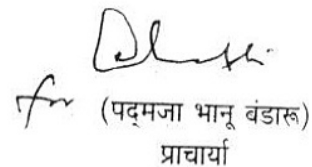 for (पद्मजा भानू बंडारू)
प्राचार्या